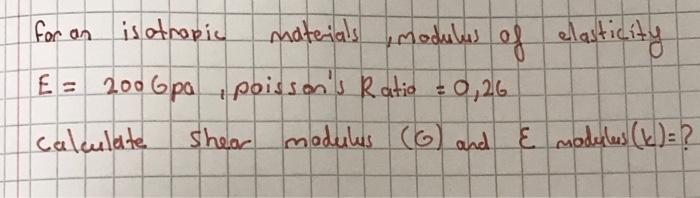 For an isotropic materials, modulus of elasticity
E = 200Gpa, poisson's Ratio = 0,26
calculate shear modulus (G) and ε modulus(k)=?